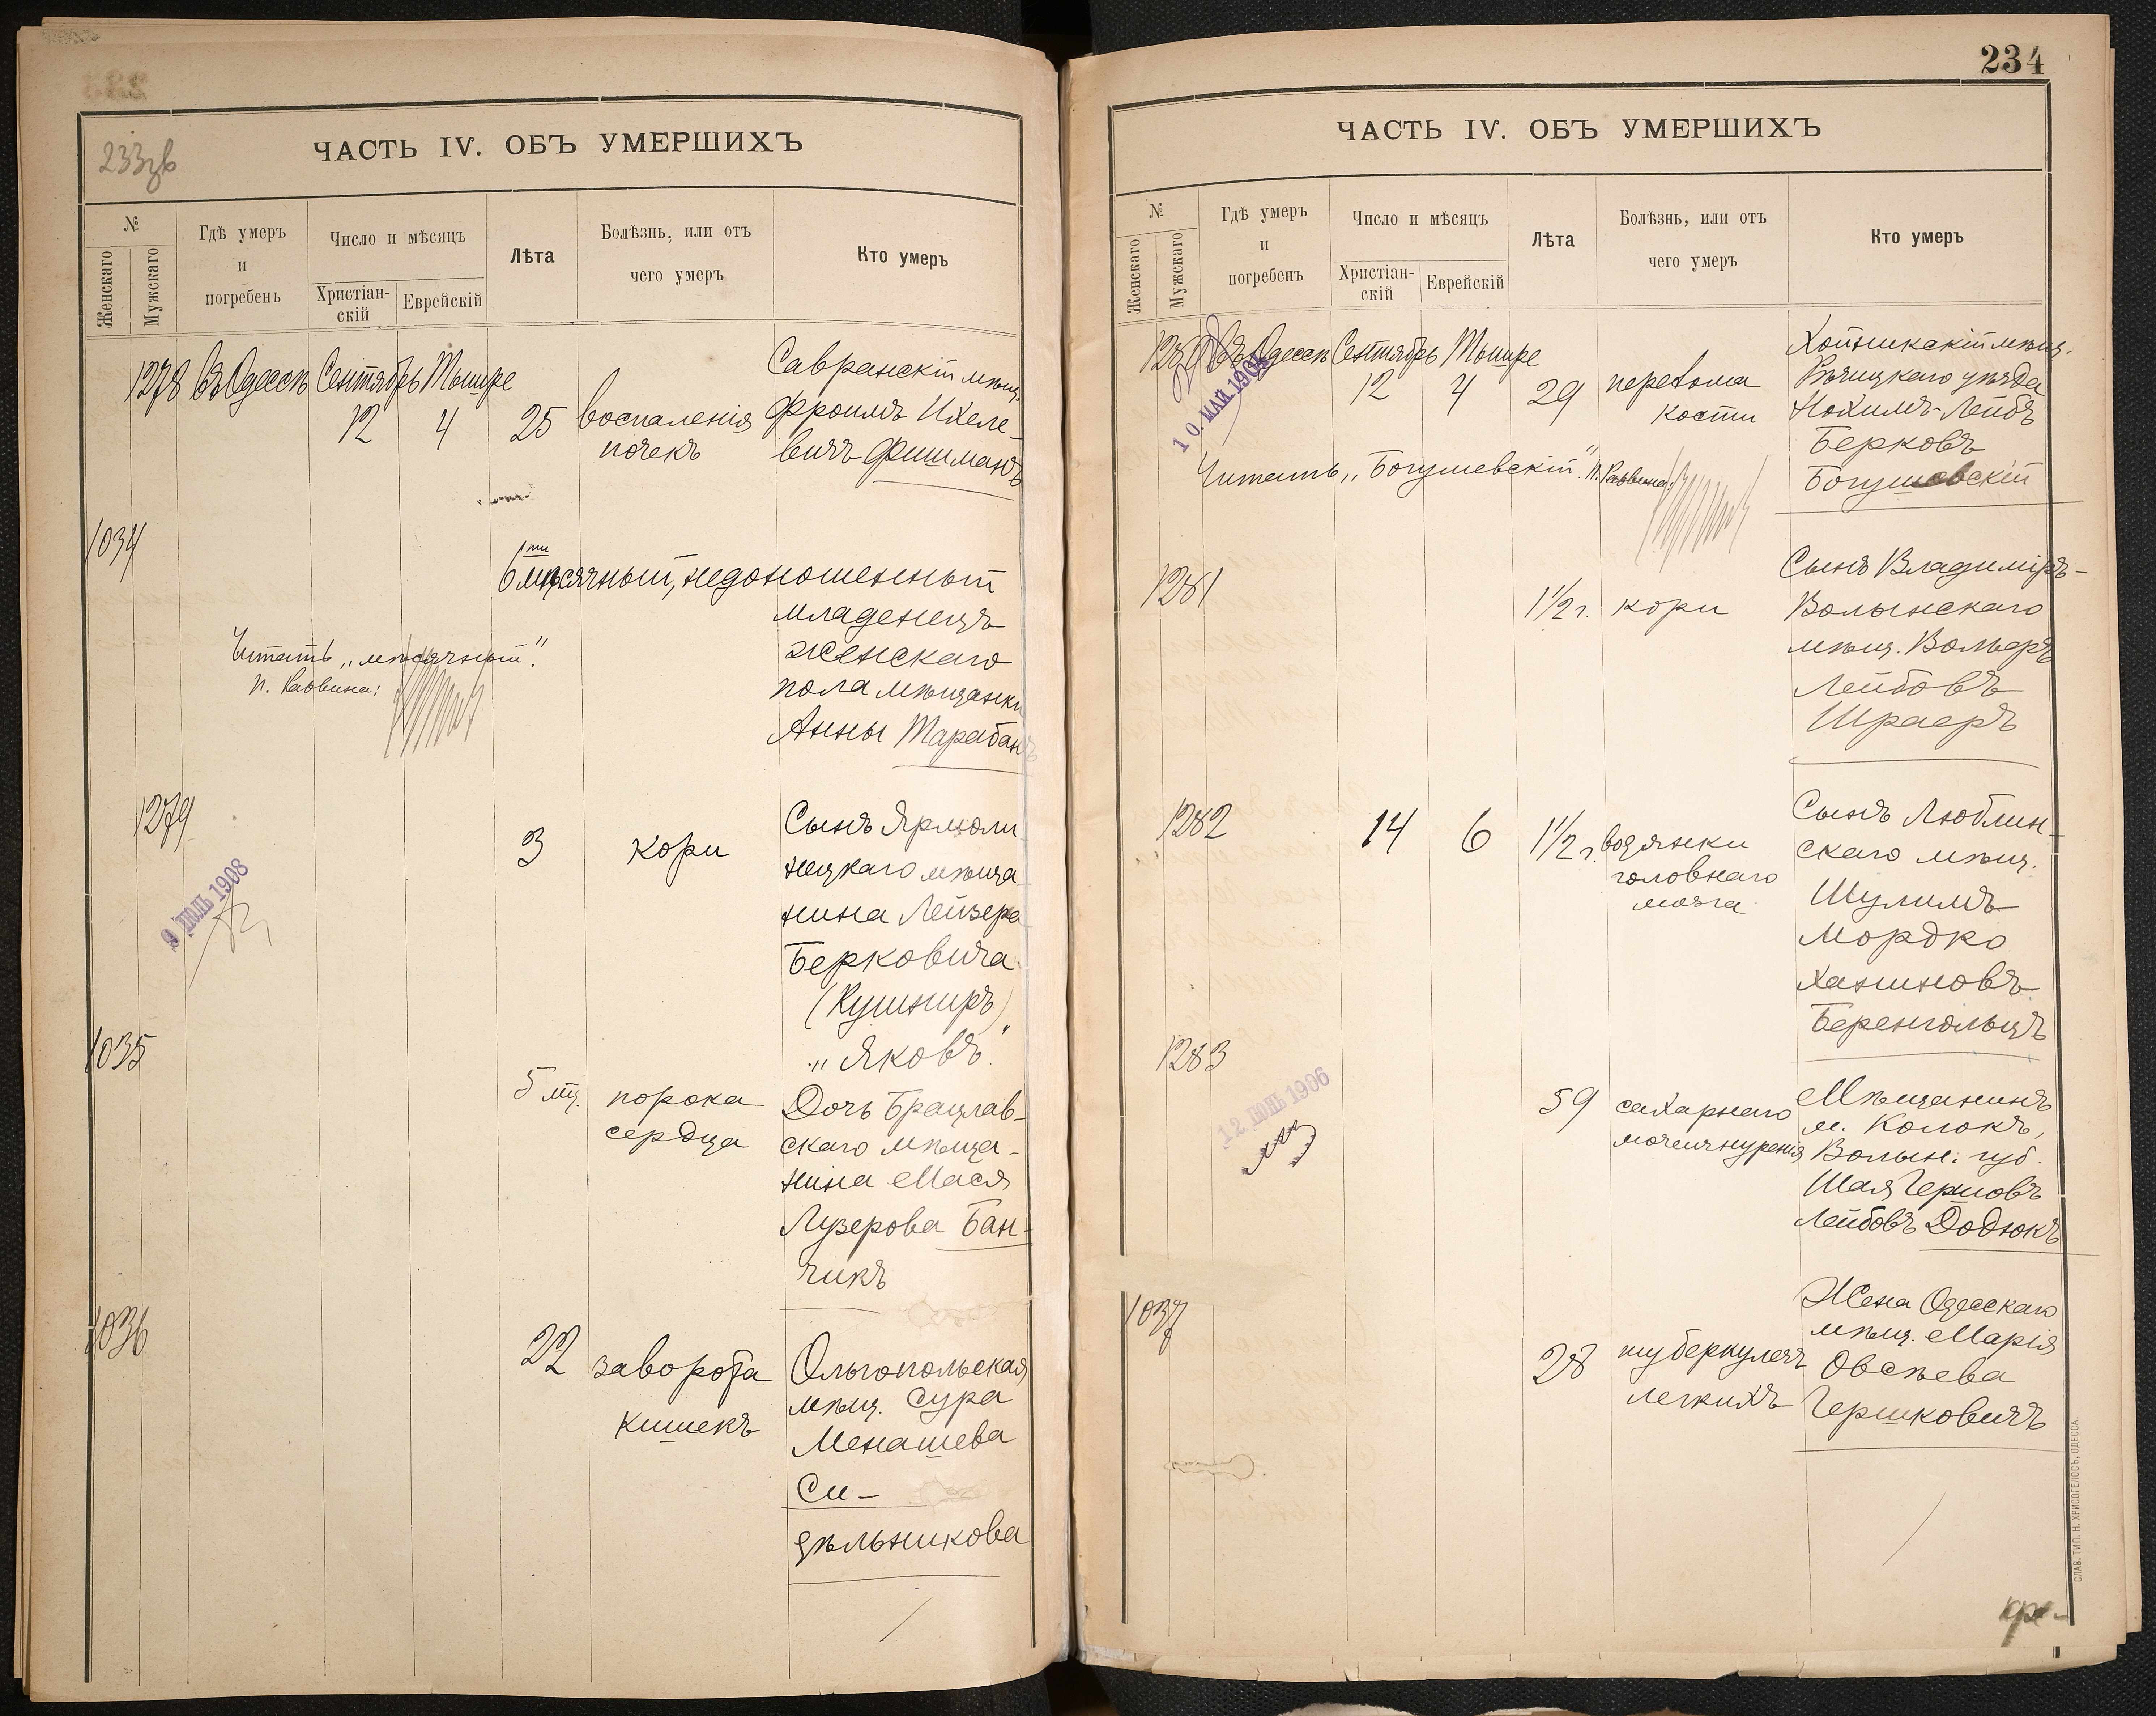 233зв
ЧАСТЬ IV. ОБЪ УМЕРШИХЪ
№
Женскаго
Мужскаго
Гдѣ умеръ
и
погребенъ
Число и мѣсяцъ
Христіан-
скій
Еврейскій
Лѣта
Болѣзнь, или отъ
чего умеръ
Кто умеръ
1278 въ Одессѣ Сентябрь Тышре
12 4 25
воспаленія
почекъ
Савранскій мѣщ.
Фроимъ Ихеле-
вичъ Фишманъ
1034
6ти мѣсячный, недоношенный
младенецъ
женскаго
пола мѣщанки
Анны Тарабанъ
Читать „мѣсячный".
п. Раввина:
1279
3 кори
Сынъ Ярмоли
нецкаго мѣща-
нина Лейзера
Берковича
(Кушниръ)
„Яковъ"
9 ІЮЛЬ 1908
1035
5 мц. порока
сердца
Дочь Брацлав-
скаго мѣща-
нина Мася
Лузерова Бан-
чикъ
1036
22 заворота
кишекъ
Ольгопольская
мѣщ. Сура
Менашева
Си-
дѣльникова
234
ЧАСТЬ IV. ОБЪ УМЕРШИХЪ
№
Женскаго
Мужскаго
Гдѣ умеръ
и
погребенъ
Число и мѣсяцъ
Христіан-
скій
Еврейскій
Лѣта
Болѣзнь, или отъ
чего умеръ
Кто умеръ
1280 въ Одессѣ Сентябрь Тышре
12 4 29
перелома
кости
Хойникскій мѣщ.
Рѣчицкаго уѣзда
Нохимъ-Лейбъ
Берковъ
Богушевскій
10 МАЯ
Читать „Богушевскій". п. Раввина:
1281
1½ г. кори
Сынъ Владиміръ-
Волынскаго
мѣщ. Вольфъ
Лейбовъ
Шраеръ
1282
14 6 1½ г.
водянки
головнаго
мозга
Сынъ Люблин-
скаго мѣщ.
Шулимъ
Мордко
Ханиновъ
Беренгольцъ
1283
59 сахарнаго
мочеизнуренія
Мѣщанинъ
м. Колокъ,
Волын. губ.
Шая Гершовъ
Лейбовъ Додюкъ
12 ІЮНЬ 1906
1037
28 туберкулезъ
легкихъ
Жена Одесскаго
мѣщ. Марія
Овсѣева
Гершковичъ
СЛАВ. ТИП. Н. ХРИСОГЕЛОСЪ, ОДЕССА.